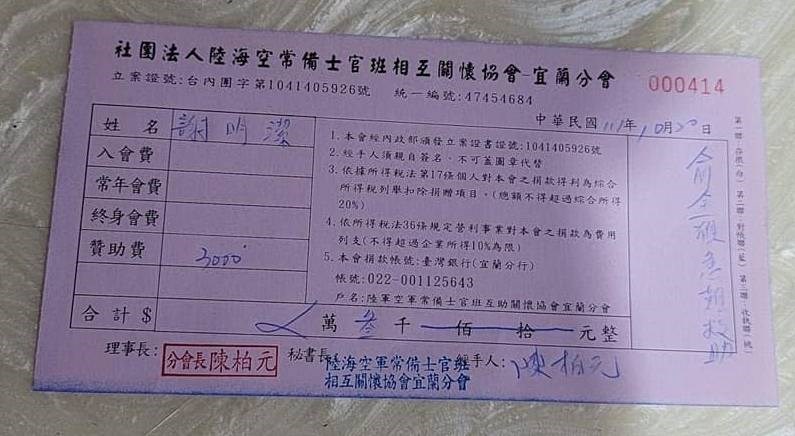 社團法人陸海空常備士官班相互關懷協會-宜蘭分會
立案證號:台內團字第1041405926號 統一編號:47454684
000414
中華民國111年10月20日
姓名 謝明潔
入會費
常年會費
終身會費
贊助費 3000
合計$ 萬叁千佰拾元整
1.本會經內政部頒發立案證書證號:1041405926號
2.經手人須親自簽名、不可蓋圖章代替
3.依據所得稅法第17條個人對本會之捐款得列為綜合
所得稅列舉扣除捐贈項目。(總額不得超過綜合所得
20%)
4.依所得稅法36條規定營利事業對本會之捐款為費用
列支(不得超過企業所得10%為限)
5.本會捐款帳號:臺灣銀行(宜蘭分行)
帳號:022-001125643
戶名:陸軍空軍常備士官班互助關懷協會宜蘭分會
急難救助
第一聯:存根(白) 第二聯:對帳聯(藍) 第三聯:收執聯(紅)
理事長: 分會長陳柏元 秘書長 經手人:陳柏元
陸海空軍常備士官班
相互關懷協會宜蘭分會